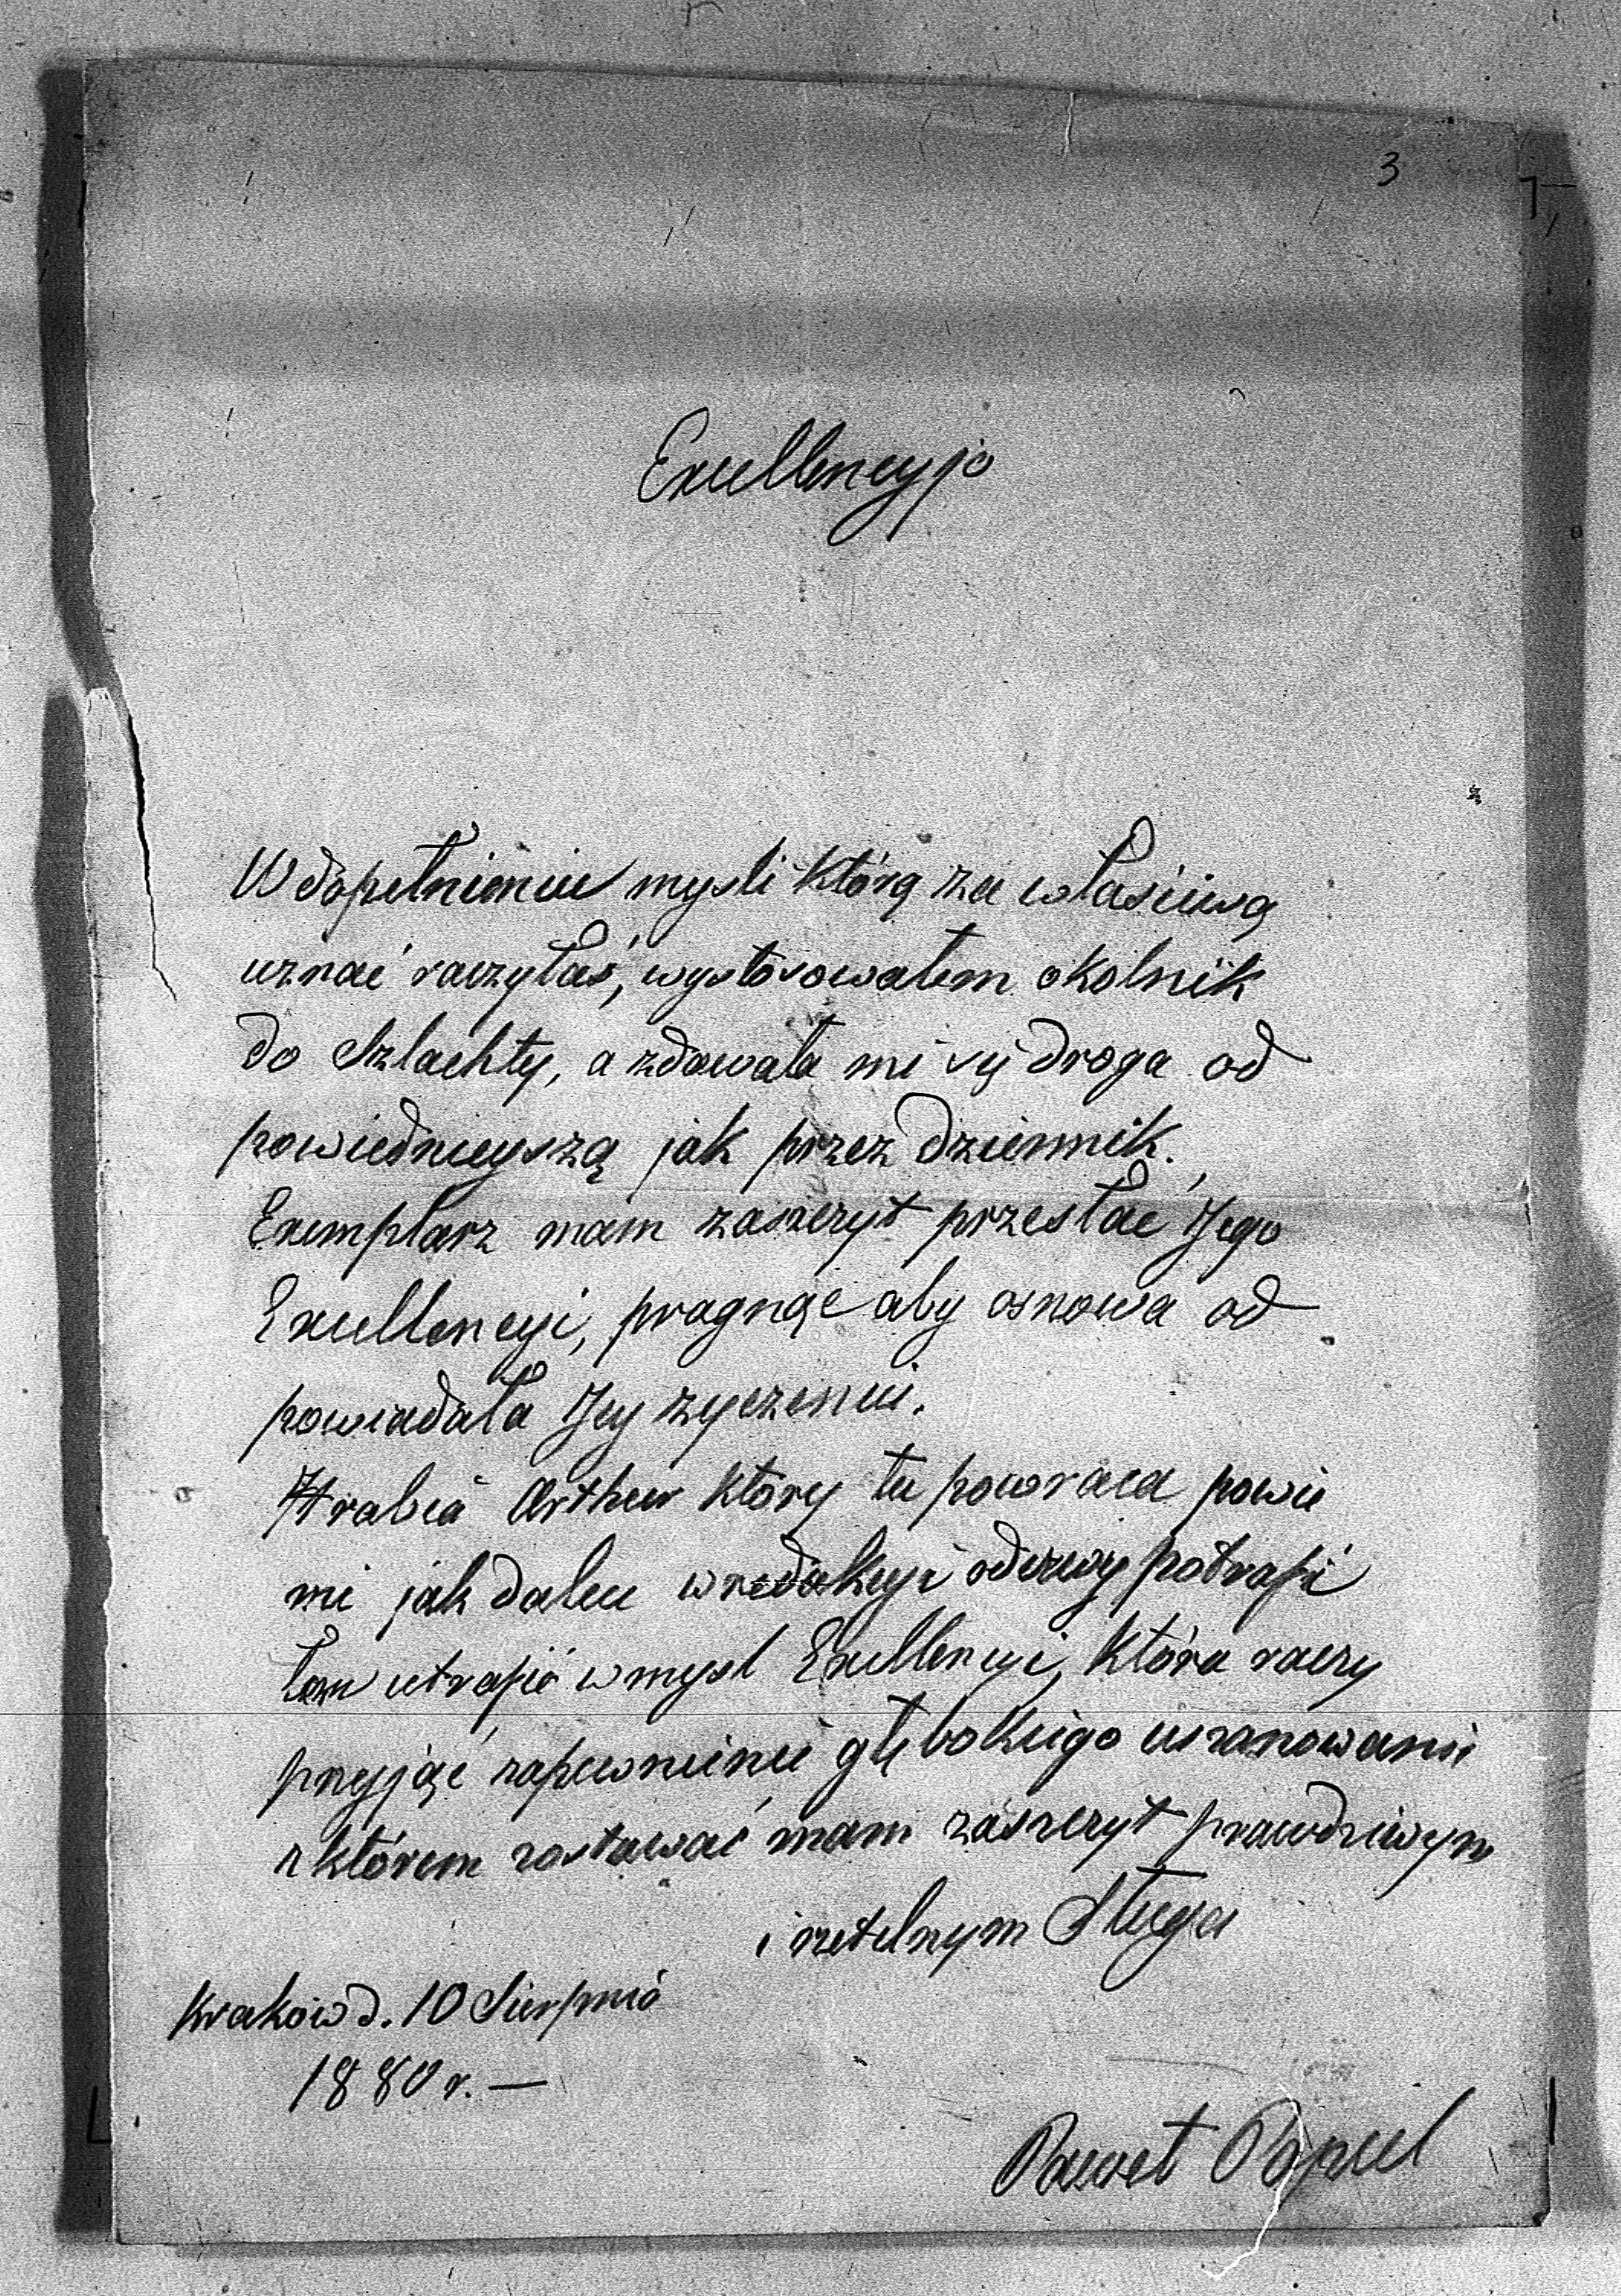 3
Excellencyjo
W dopełnieniu mysli którą za własciwą
uznać raczyłaś, wystosowałem okolnik
do Szlachty, a zdawała mi się droga od
powiednieyszą jak przez dziennik.
Exemplarz mam zaszczyt przesłać Jego
Excellencyi, pragnąc aby osnowa od
powiadała Jey zyczeniu.
Hrabia Arthur który tu powraca powie
mi jak dalece w redakcyi odezwy potrafił
utrafić w mysl Excellencyi, która raczy
przyjąć zapewnienie głębokiego uszanowania
z którem zostawać mam zaszczyt prawdziwym
i rzetelnym Sługa
Kraków d. 10 Sierpnia
1880 r. —
Paweł Popiel